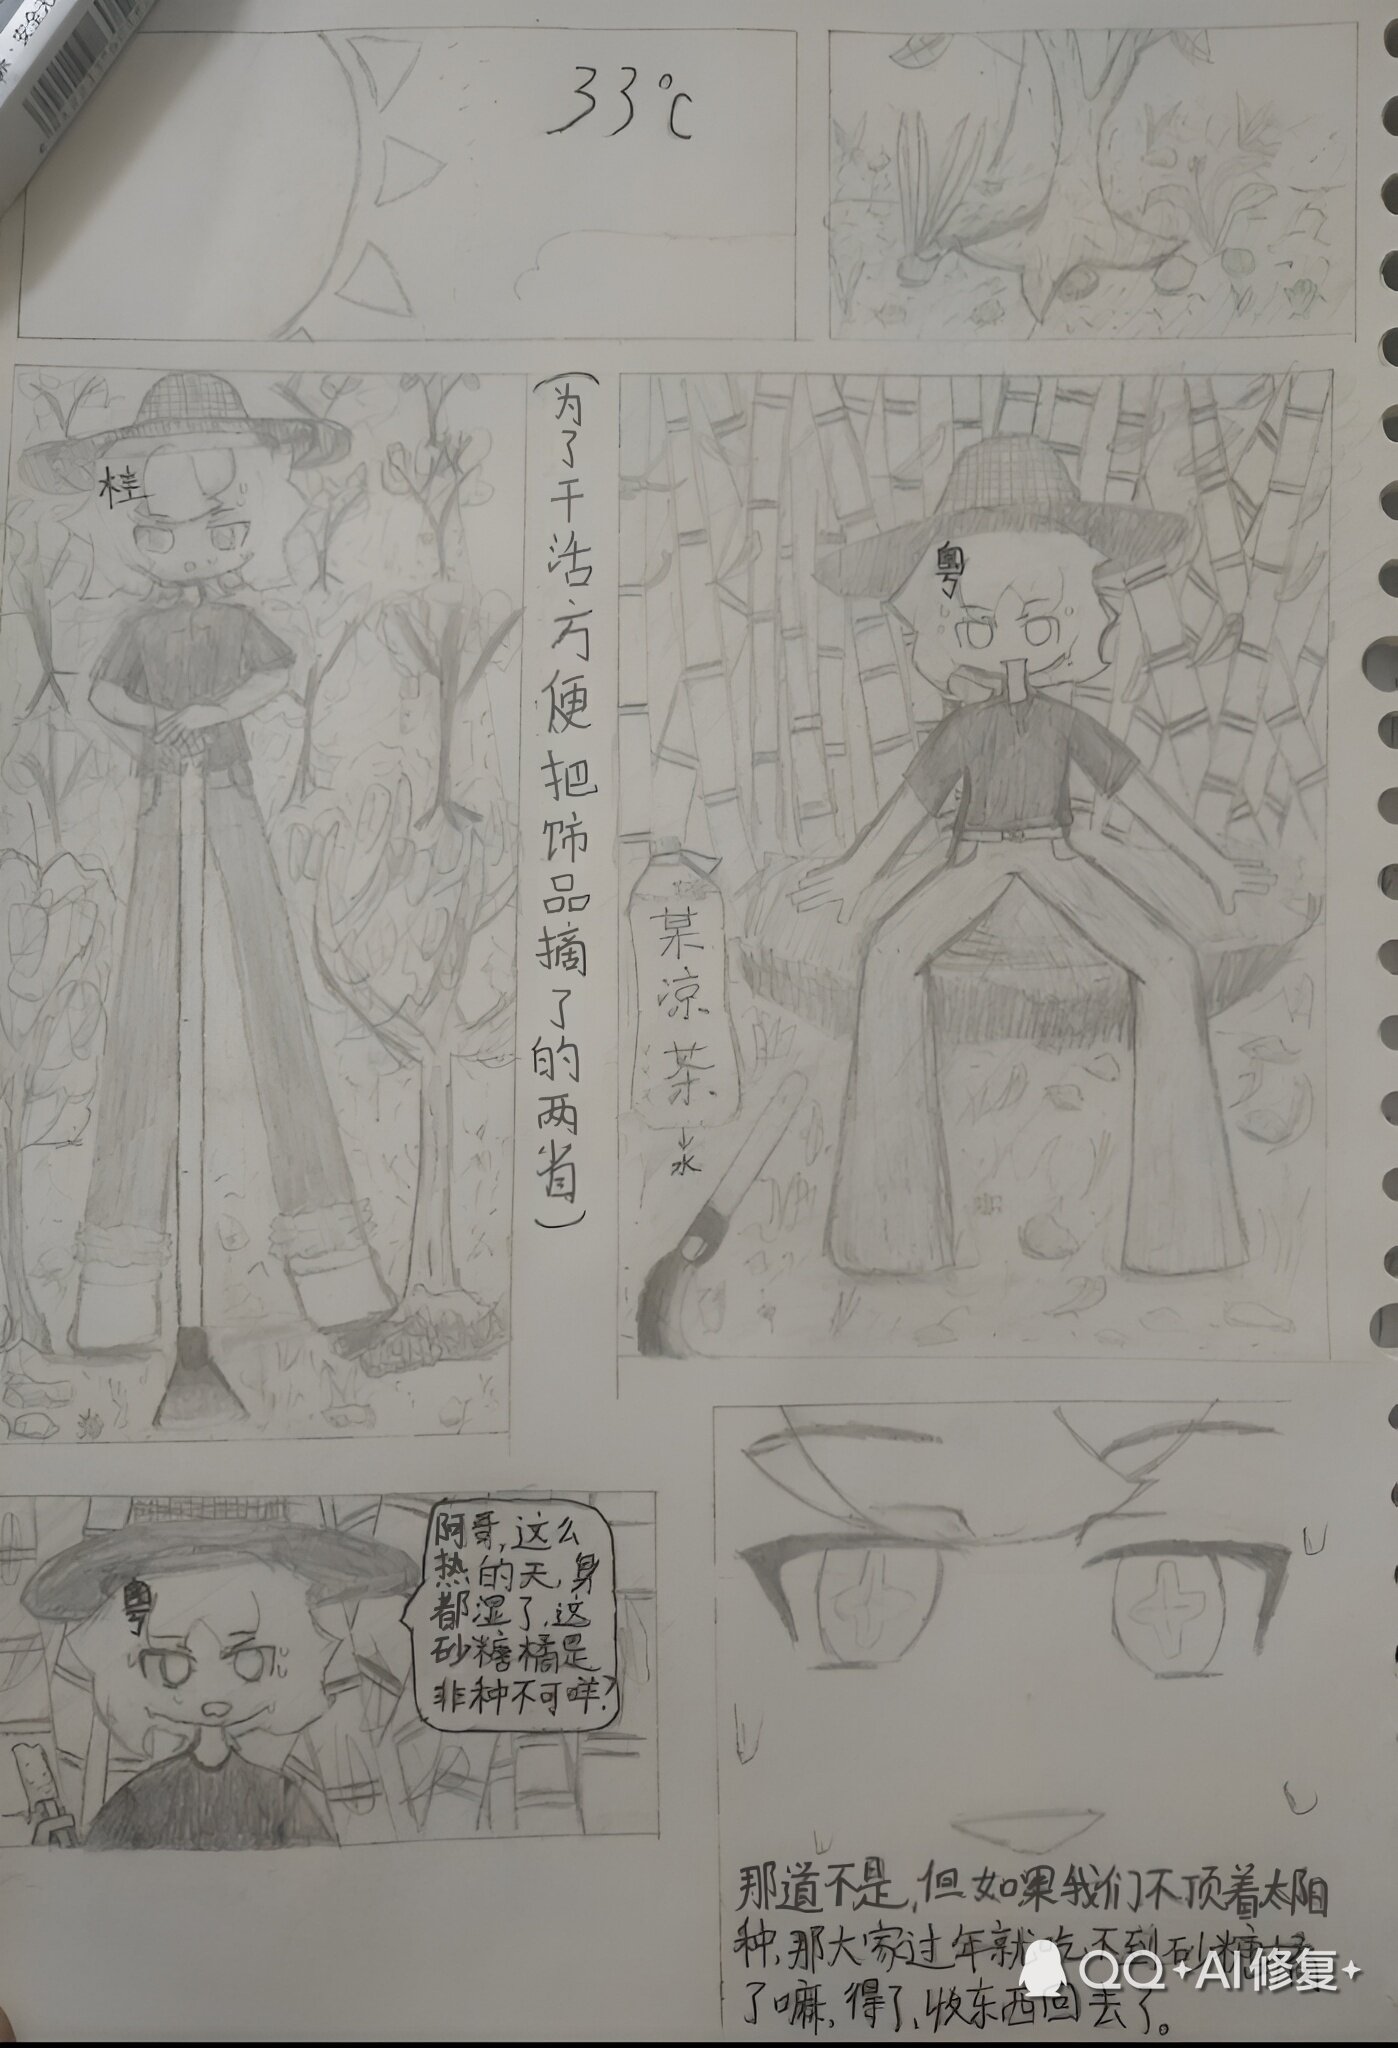 安全
33°C
桂
(为了干活方便把饰品摘了的两省)
粤
某凉茶
水
粤
阿哥,这么
热的天,身
都湿了,这
砂糖橘是
非种不可咩?
那道不是,但如果我们不顶着太阳
种,那大家过年就吃不到砂糖橘
了嘛,得了,收东西回去了。
QQ AI修复